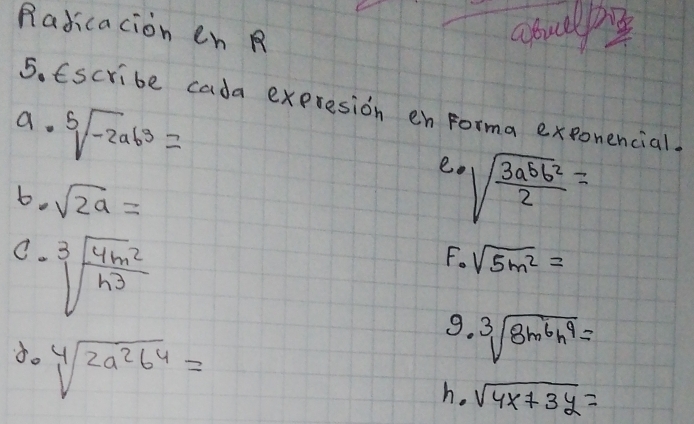 Radicación en R
5. Escribe cada expresión en Forma exponencial.
a. ⁵√-2ab³ =
b. √2a =
c. ³√(4m²/n³)
d. ⁴√2a²b⁴ =
e. √(3a⁵b²/2) =
F. √5m² =
g. ³√8m⁶n⁹ =
h. √4x+3y =